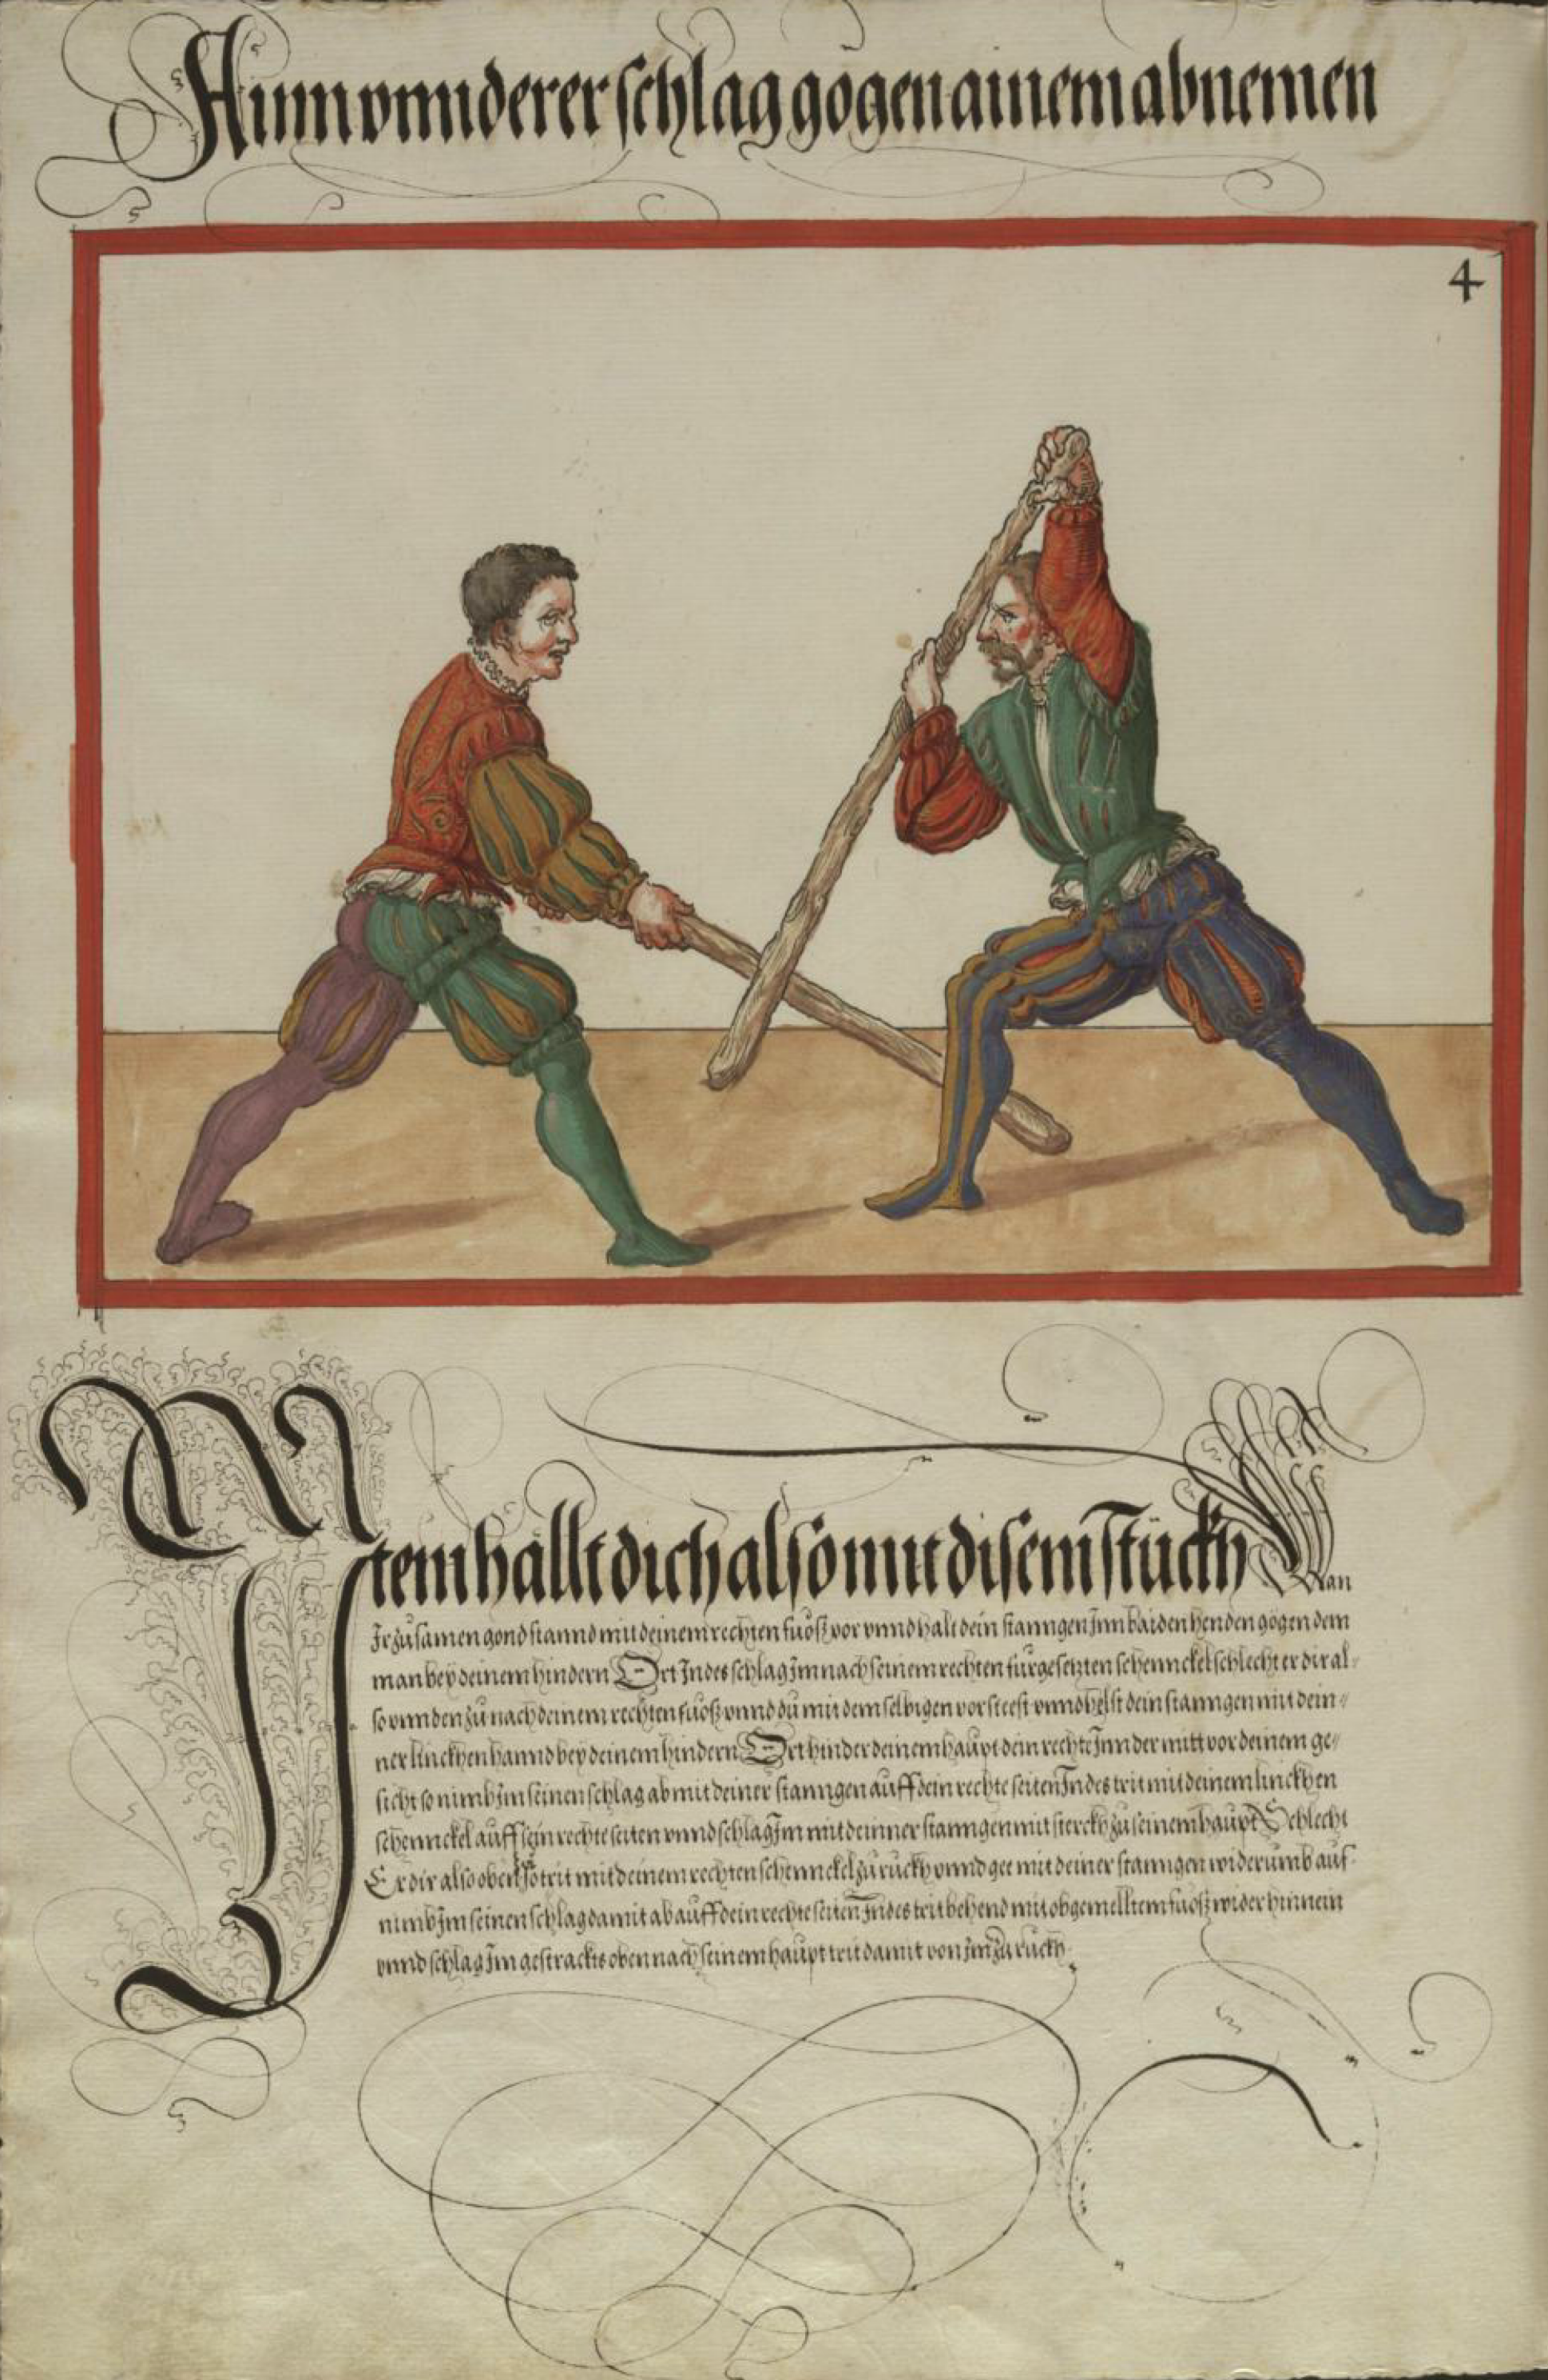 Ainn vnnderer schlag gögen ainem abnemen
4
Item hallt dich also mit disem stückh Wan
Ir zusamen gond stannd mit deinem rechten fuoß vor vnnd halt dein stanngen Inn baiden henden gögen dem
man bey deinem hindern Ort Indes schlag Im nach seinem rechten fürgesetzten schennckel schlecht er dir al-
so vnnden zu nach deinem rechten fuoß vnnd du mit dem selbigen vor steest vnnd helst dein stanngen mit dein-
ner linckhen hannd bey deinem hindern Ort hinder deinem haupt dein rechte Inn der mitt vor deinem ge-
sicht so nimb Im seinen schlag ab mit deiner stanngen auff dein rechte seiten Indes trit mit deinem linckhen
schennckel auff sein rechte seiten vnnd schlag Im mit deinner stanngen mit sterckh zu seinem haupt Schlecht
Er dir also oben so trit mit deinem rechten schennckel zu ruckh vnnd gee mit deiner stanngen widerumb auf
nimb Im seinen schlag damit ab auff dein rechte seiten Indes trit behend mit obgemelltem fuoß wider hinnein
vnnd schlag Im gestrackts oben nach seinem haupt trit damit von Im zu ruckh